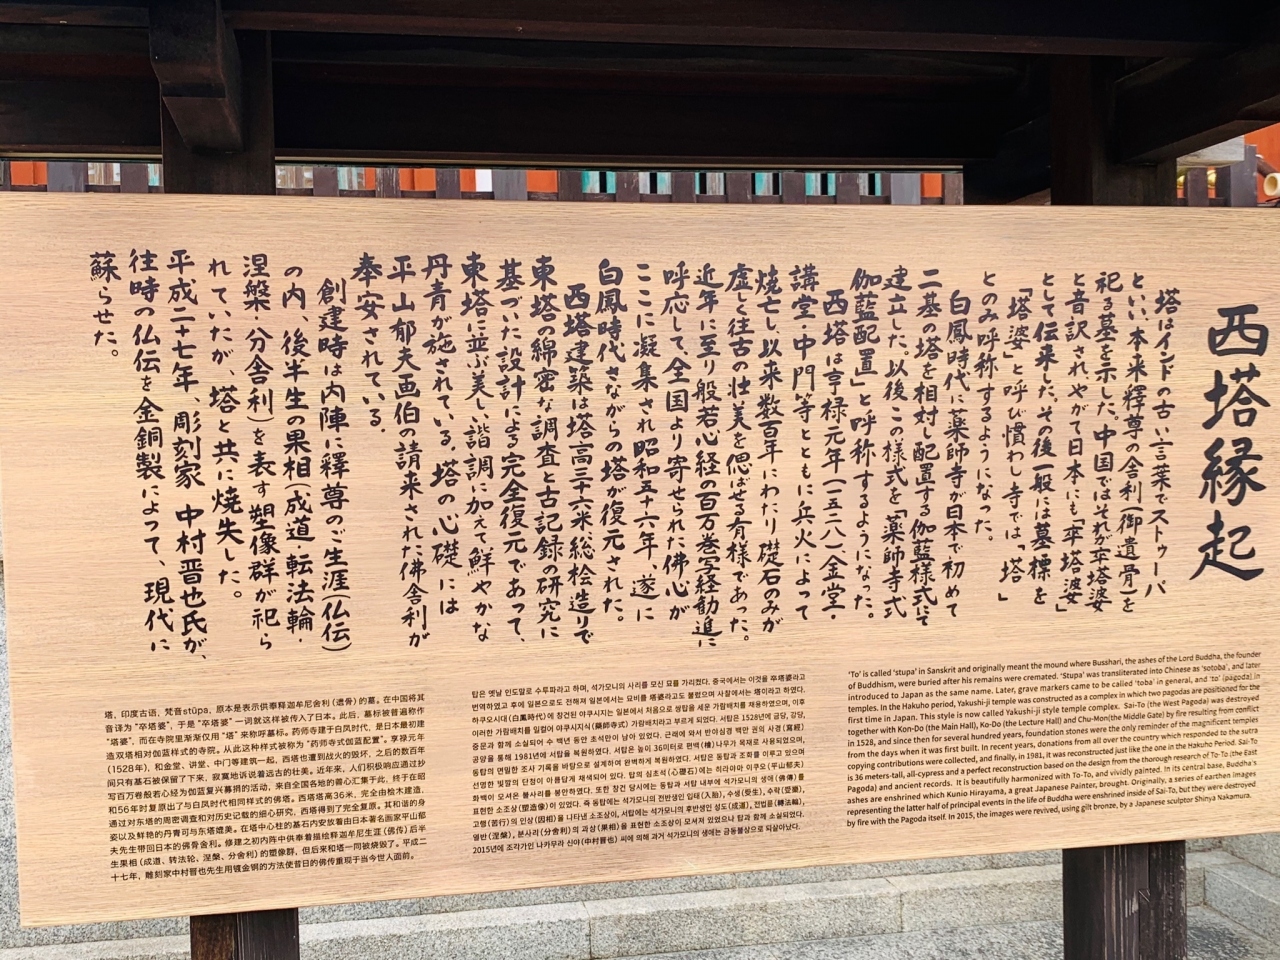 西塔縁起
塔はインドの古い言葉でストゥーパ
といい、本来釋尊の舎利(御遺骨)を
祀る墓を示した。中国ではそれが卒塔婆
と音訳されやがて日本にも「卒塔婆」
として伝来した。その後一般には墓標を
「塔婆」と呼び慣わし寺では「塔」
とのみ呼称するようになった。
白鳳時代に薬師寺が日本で初めて
二基の塔を相対し配置する伽藍様式にて
建立した。以後この様式を「薬師寺式
伽藍配置」と呼称するようになった。
西塔は享禄元年(一五二八)、金堂・
講堂・中門等とともに兵火によって
焼亡し、以来数百年にわたり礎石のみが
虚しく往古の壮美を偲ばせる有様であった。
近年に至り般若心経の百万巻写経勧進に
呼応して、全国より寄せられた佛心が
ここに凝集され昭和五十六年、遂に
白鳳時代さながらの塔が復元された。
西塔建築は塔高三十六米、総桧造りで
東塔の綿密な調査と古記録の研究に
基づいた設計による完全復元であって、
東塔に並ぶ美しい諧調に加えて鮮やかな
丹青が施されている。塔の心礎には
平山郁夫画伯の請来された佛舎利が
奉安されている。
創建時は内陣に釋尊のご生涯(仏伝)
の内、後半生の果相(成道・転法輪・
涅槃・分舎利)を表す塑像群が祀ら
れていたが、塔と共に焼失した。
平成二十七年、彫刻家 中村晋也氏が、
往時の仏伝を金銅製によって、現代に
蘇らせた。
塔，印度古语，梵音stūpa，原本是表示供奉释迦牟尼舍利（遗骨）的墓。在中国将其
音译为“卒塔婆”，于是“卒塔婆”一词就这样被传入了日本。此后，墓标被普遍称作
“塔婆”，而在寺院里渐渐仅用“塔”来称呼墓标。药师寺建于白凤时代，是日本最初建
造双塔相对伽蓝样式的寺院。从此这种样式被称为“药师寺式伽蓝配置”。享禄元年
(1528年)，和金堂、讲堂、中门等建筑一起，西塔也遭到战火的毁坏，之后的数百年
间只有基石被保留了下来，寂寞地诉说着远古的壮美。近年来，人们积极响应通过抄
写百万卷般若心经为伽蓝复兴募捐的活动，来自全国各地的爵心汇集于此，终于在昭
和56年时复原出了与白凤时代相同样式的佛塔。西塔塔高36米，完全由桧木建造
通过对东塔的周密调查和对历史记载的细心研究，西塔得到了完全复原。其和谐的身
姿以及鲜艳的丹青可与东塔媲美。在塔中心柱的基石内安放着由日本著名画家平山郁
夫先生带回日本的佛骨舍利。修建之初内阵中供奉着描绘释迦牟尼生涯（佛传）后半
生果相（成道、转法轮、涅槃、分舍利）的塑像群，但后来和塔一同被烧毁了。平成二
十七年，雕刻家中村晋也先生用镀金铜的方法使昔日的佛传重现于当今世人面前。
탑은 옛날 인도말로 수투파라고 하며, 석가모니의 사리를 모신 묘를 가리켰다. 중국에서는 이것을 卒塔婆라고
번역하였고 후에 일본으로도 전해져 일본에서는 묘비를 塔婆라고도 불렀으며 사찰에서는 塔이라고 하였다.
하쿠오시대(白鳳時代)에 창건된 야쿠시지는 일본에서 처음으로 쌍탑을 세운 가람배치를 채용하였으며, 이후
이러한 가람배치를 일컬어 야쿠시지식(藥師寺式) 가람배치라고 부르게 되었다. 서탑은 1528년에 금당, 강당,
중문과 함께 소실되어 수 백년 동안 초석만이 남아 있었다. 근래에 와서 반야심경 백만 권의 사경(寫經)
공양을 통해 1981년에 서탑을 복원하였다. 서탑은 높이 36미터로 편백(檜)나무가 목재로 사용되었으며,
동탑의 면밀한 조사 기록을 바탕으로 설계하여 완벽하게 복원하였다. 서탑은 동탑과 조화를 이루고 있으며
선명한 빛깔의 단청이 아름답게 채색되어 있다. 탑의 심초석(心礎石)에는 히라야마 이쿠오(平山郁夫)
화백이 모셔온 불사리를 봉안하였다. 또한 창건 당시에는 동탑과 서탑 내부에 석가모니의 생애(佛傳)를
표현한 소조상(塑造像)이 있었다. 즉 동탑에는 석가모니의 전반생인 입태(入胎), 수생(受生), 수락(受樂),
고행(苦行)의 인상(因相)을 나타낸 소조상이, 서탑에는 석가모니의 후반생인 성도(成道), 전법륜(轉法輪),
열반(涅槃), 분사리(分舍利)의 과상(果相)을 표현한 소조상이 모셔져 있었으나 탑과 함께 소실되었다.
2015년에 조각가인 나카무라 신야(中村晋也) 씨에 의해 과거 석가모니의 생애는 금동불상으로 되살아났다.
'To' is called 'stupa' in Sanskrit and originally meant the mound where Busshari, the ashes of the Lord Buddha, the founder
of Buddhism, were buried after his remains were cremated. 'Stupa' was transliterated into Chinese as 'sotoba', and later
introduced to Japan as the same name. Later, grave markers came to be called 'toba' in general, and 'to' (pagoda) in
temples. In the Hakuho period, Yakushi-ji temple was constructed as a complex in which two pagodas are positioned for the
first time in Japan. This style is now called Yakushi-ji style temple complex. Sai-To (the West Pagoda) was destroyed
together with Kon-Do (the Main Hall), Ko-Do (the Lecture Hall) and Chu-Mon(the Middle Gate) by fire resulting from conflict
in 1528, and since then for several hundred years, foundation stones were the only reminder of the magnificent temples
from the days when it was first built. In recent years, donations from all over the country which responded to the sutra
copying contributions were collected, and finally, in 1981, it was reconstructed just like the one in the Hakuho Period. Sai-To
is 36 meters-tall, all-cypress and a perfect reconstruction based on the design from the thorough research of To-To (the East
Pagoda) and ancient records. It is beautifully harmonized with To-To, and vividly painted. In its central base, Buddha's
ashes are enshrined which Kunio Hirayama, a great Japanese Painter, brought. Originally, a series of earthen images
representing the latter half of principal events in the life of Buddha were enshrined inside of Sai-To, but they were destroyed
by fire with the Pagoda itself. In 2015, the images were revived, using gilt bronze, by a Japanese sculptor Shinya Nakamura.